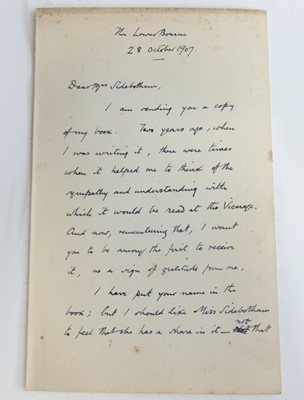 The Lower Bourne
28 October 1907.
Dear Mrs Sidebotham,
I am sending you a copy
of my book. Two years ago, when
I was writing it, there were times
when it helped me to think of the
sympathy and understanding with
which it would be read at the Vicarage.
And now, remembering that, I want
you to be among the first to receive
it, as a sign of gratitude from me.
I have put your name in the
book; but I should like Miss Sidebotham
to feel that she has a share in it — not that